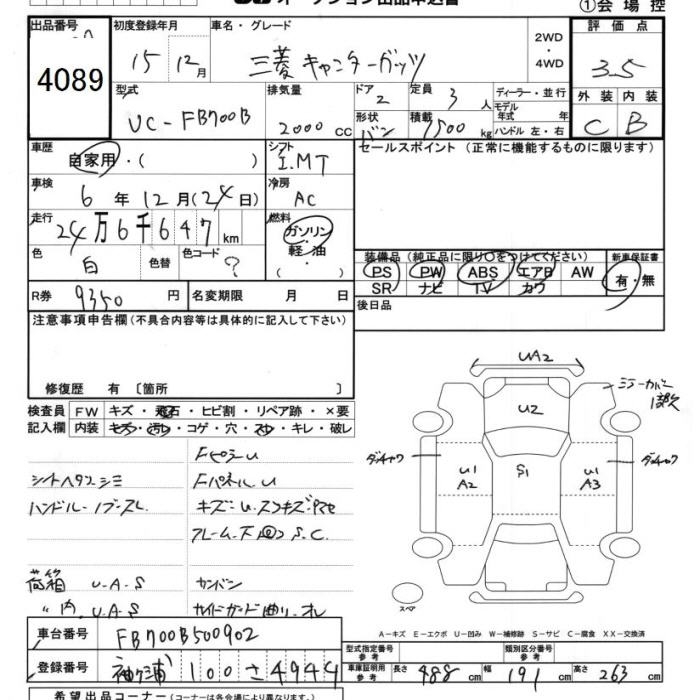 オークション出品申込書
①会場控
出品番号
4089
初度登録年月
15年 12月
車名・グレード
三菱 キャンターガッツ
2WD
・
4WD
評価点
3.5
型式
UC-FB700B
排気量
2000 CC
ドア
2
定員
3 人
形状
バン
積載
1500 kg
ディーラー・並行
モデル
年式 年
ハンドル 左・右
外装 内装
C B
車歴
自家用・( )
シフト
I.MT
セールスポイント (正常に機能するものに限ります)
車検
6年 12月(24日)
冷房
AC
走行
24万6千647km
燃料
ガソリン
・
軽・油
( )
色
白
色替
色コード
?
装備品 (純正品に限り○をつけてください)
新車保証書
PS PW ABS エアB AW
有・無
SR ナビ TV カワ
R券 9350 円
名変期限 月 日
後日品
注意事項申告欄(不具合内容等は具体的に記入して下さい)
修復歴 有 〔箇所 〕
検査員 FW キズ・飛石・ヒビ割・リペア跡・×要
記入欄 内装 キズ・汚れ・コゲ・穴・スレ・キレ・破レ
FパネルU
シートヘタレシミ
キズ・U・
フレーム・下回りS.C.
荷箱 U.A.S
〃内 U.A.S
サイドガード曲り
UA2
U2
ミラーカバー
U1
A2
S1
U1
A3
スペア
A-キズ E-エクボ U-凹み W-補修跡 S-サビ C-腐食 XX-交換済
車台番号 FB700B500902
登録番号 袖ケ浦 100 さ 4944
型式指定番号
参考
類別区分番号
参考
車庫証明用
参考
長さ 488cm 幅 191cm 高さ 263cm
希望出品コーナー(コーナーは各会場により異なります)